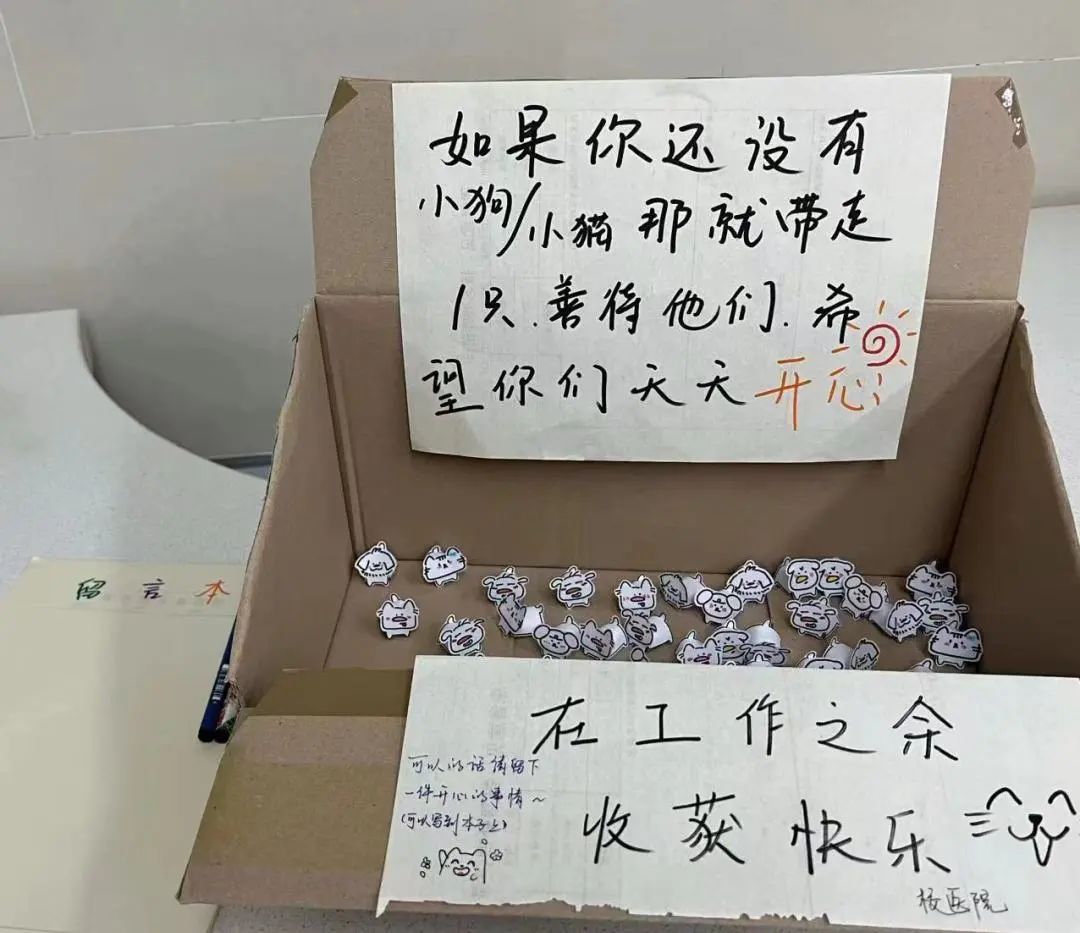 如果你还没有
小狗/小猫那就带走
1只.善待他们.希
望你们天天开心
留言本
在工作之余
收获快乐
可以的话请留下
一件开心的事情~
(可以写到本子上)
校医院